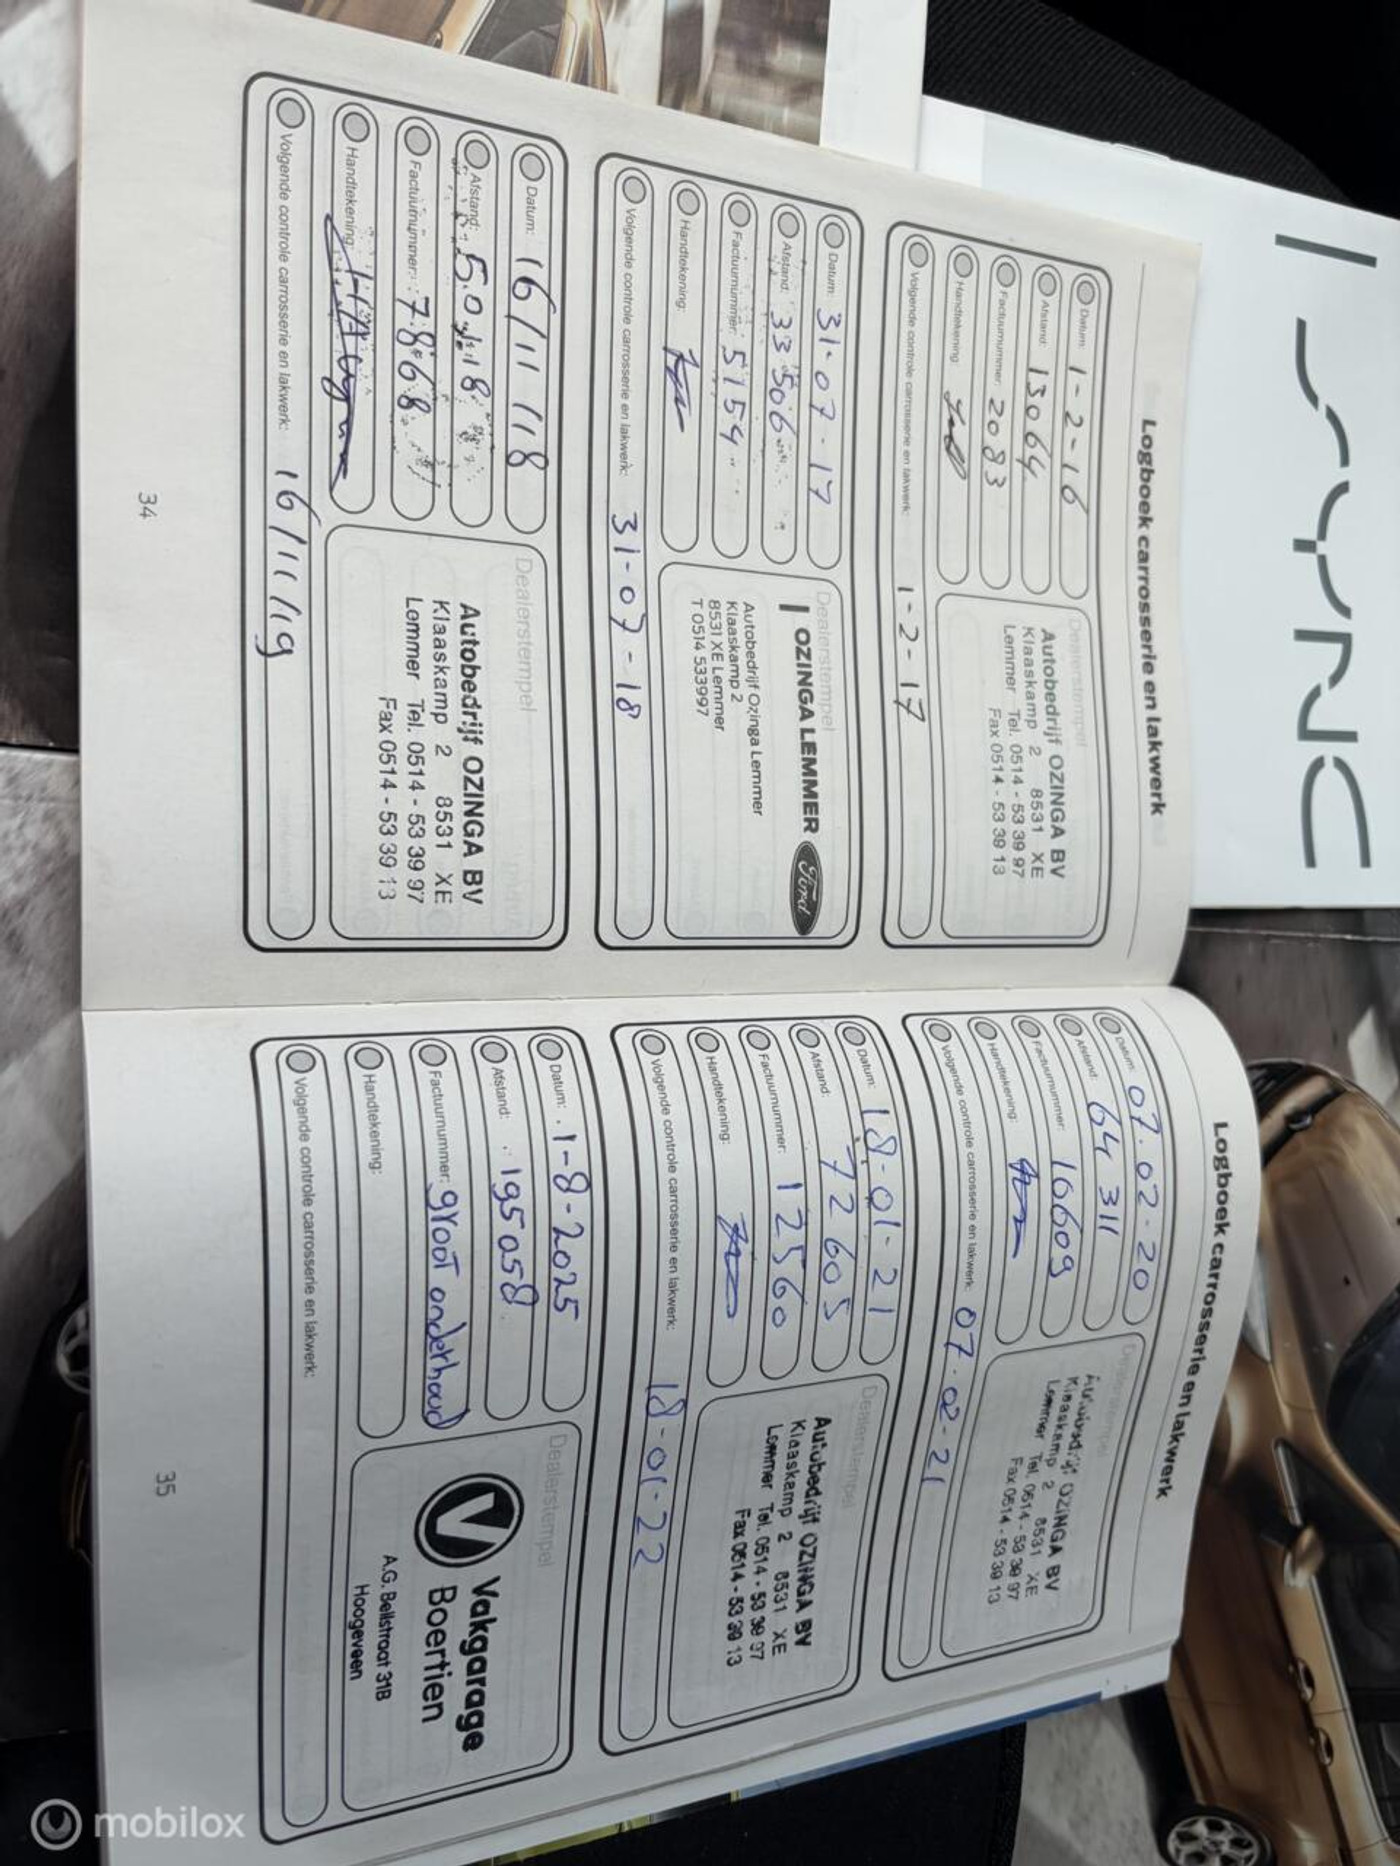 SYNC
Logboek carrosserie en lakwerk
Datum: 1-2-16
Afstand: 13064
Factuurnummer: 2083
Handtekening:
Volgende controle carrosserie en lakwerk: 1-2-17
Dealerstempel
Autobedrijf OZINGA BV
Klaaskamp 2 8531 XE
Lemmer Tel. 0514 - 53 39 97
Fax 0514 - 53 39 13
Datum: 31-07-17
Afstand: 33506
Factuurnummer: 5754
Handtekening:
Volgende controle carrosserie en lakwerk: 31-07-18
Dealerstempel
OZINGA LEMMER
Ford
Autobedrijf Ozinga Lemmer
Klaaskamp 2
8531 XE Lemmer
T 0514 533997
Datum: 16/11/18
Afstand: 50118
Factuurnummer: 7868
Handtekening:
Volgende controle carrosserie en lakwerk: 16/11/19
Dealerstempel
Autobedrijf OZINGA BV
Klaaskamp 2 8531 XE
Lemmer Tel. 0514 - 53 39 97
Fax 0514 - 53 39 13
34
Logboek carrosserie en lakwerk
Datum: 07-02-20
Afstand: 64311
Factuurnummer: 10609
Handtekening:
Volgende controle carrosserie en lakwerk: 07-02-21
Dealerstempel
Autobedrijf OZINGA BV
Klaaskamp 2 8531 XE
Lemmer Tel. 0514 - 53 39 97
Fax 0514 - 53 39 13
Datum: 18-01-21
Afstand: 72605
Factuurnummer: 12560
Handtekening:
Volgende controle carrosserie en lakwerk: 18-01-22
Dealerstempel
Autobedrijf OZINGA BV
Klaaskamp 2 8531 XE
Lemmer Tel. 0514 - 53 39 97
Fax 0514 - 53 39 13
Datum: 1-8-2025
Afstand: 195058
Factuurnummer: groot onderhoud
Handtekening:
Volgende controle carrosserie en lakwerk:
Dealerstempel
Vakgarage
Boertien
A.G. Bellstraat 31B
Hoogeveen
35
mobilox